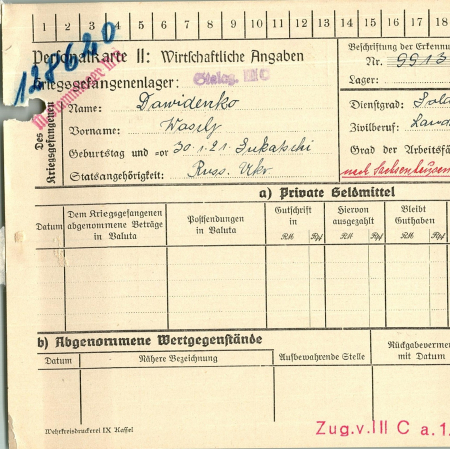 1 2 3 4 5 6 7 8 9 10 11 12 13 14 15 16 17 18
128620
Personalkarte II: Wirtschaftliche Angaben
Kriegsgefangenenlager: Stalag. III C
Beschriftung der Erkennun
Nr. 9913
Lager:
Des Kriegsgefangenen
Name: Dawidenko
Vorname: Wasely
Geburtstag und -or 30.1.21.
Statsangehörigkeit: Russ. Ukr.
Dienstgrad: Sol
Zivilberuf: Land
Grad der Arbeitsfä
nach Sachsenhausen
a) Private Geldmittel
Datum
Dem Kriegsgefangenen abgenommene Beträge in Valuta
Postsendungen in Valuta
Gutschrift in
RM Rpf
Hiervon ausgezahlt
RM Rpf
Bleibt Guthaben
RM Rpf
b) Abgenommene Wertgegenstände
Datum
Nähere Bezeichnung
Aufbewahrende Stelle
Rückgabeverme mit Datum
Wehrkreisdruckerei IX Kassel
Zug.v.III C a.1.